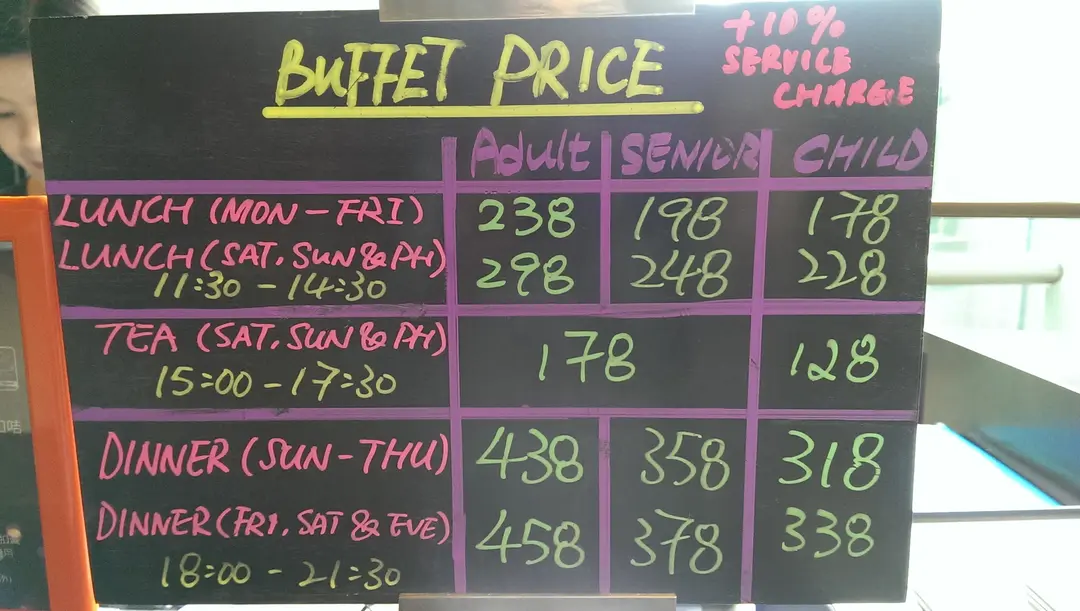 +10%
SERVICE
CHARGE
BUFFET PRICE
Adult SENIOR CHILD
LUNCH (MON-FRI) 238 198 178
LUNCH (SAT, SUN & PH) 298 248 228
11:30 - 14:30
TEA (SAT, SUN & PH) 178 128
15:00 - 17:30
DINNER (SUN-THU) 438 358 318
DINNER (FRI, SAT & EVE) 458 378 338
18:00 - 21:30